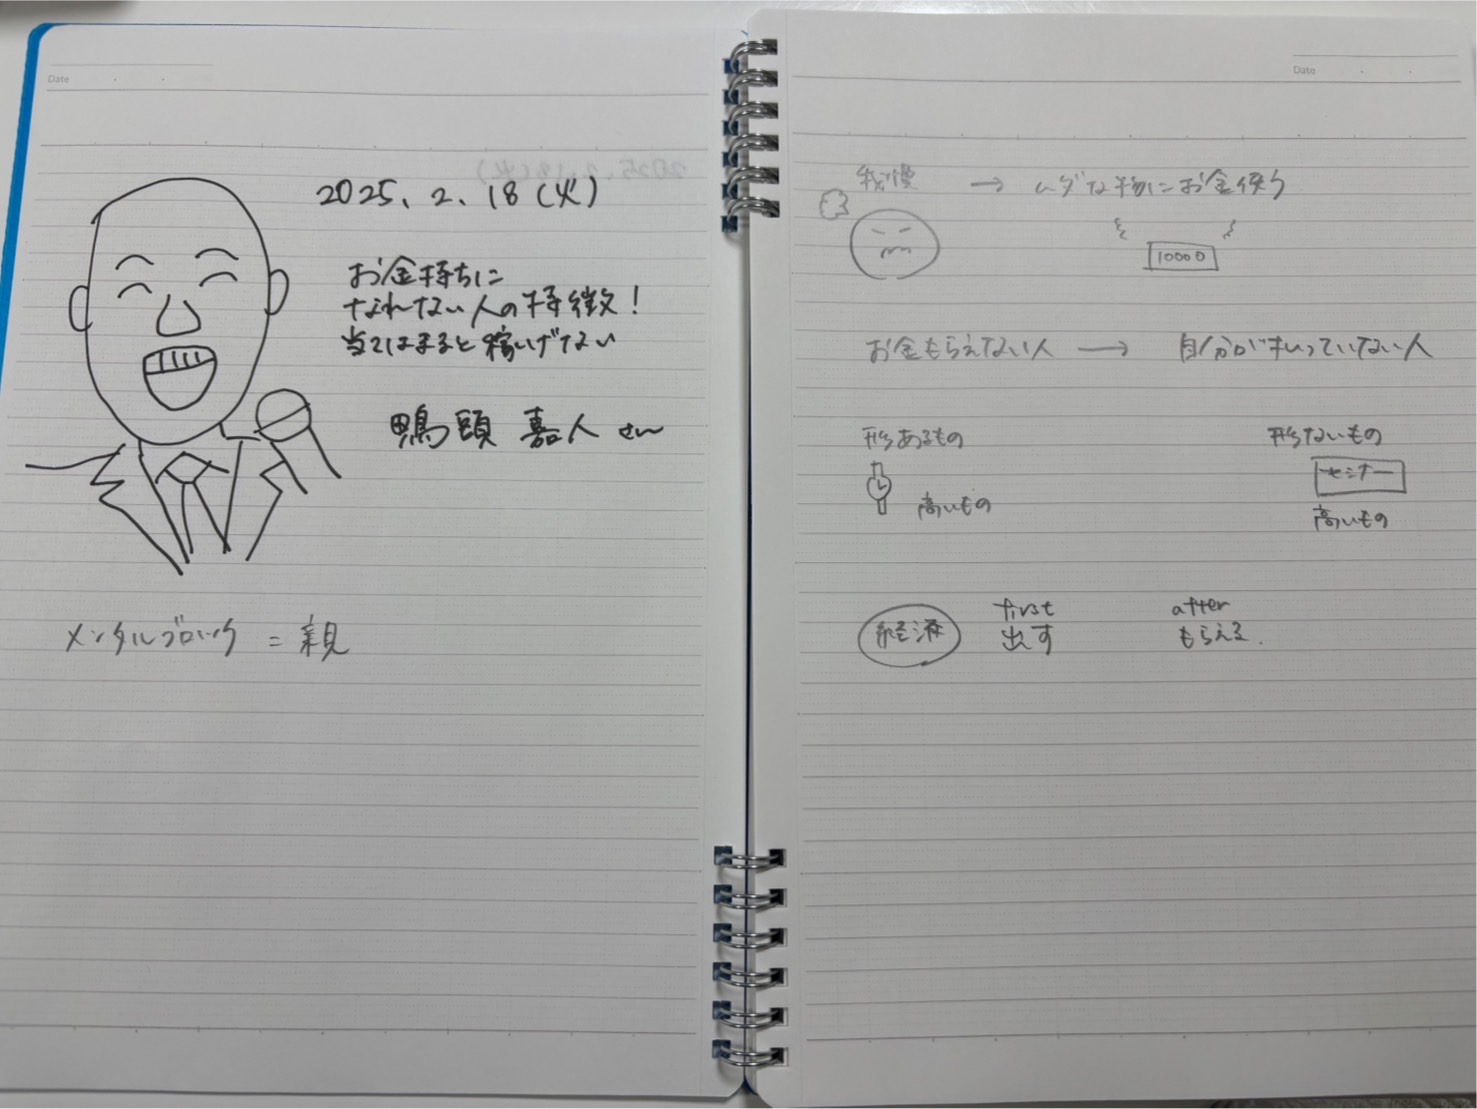 Date
2025. 2. 18 (火)
お金持ちに
なれない人の特徴!
当てはまると稼げない
鴨頭 嘉人 さん
メンタルブロック = 親
Date
我慢 → ムダな物にお金使う
10000
お金もらえない人 → 自分が払っていない人
形あるもの 形ないもの
セミナー
高いもの 高いもの
first after
経済 出す もらえる.